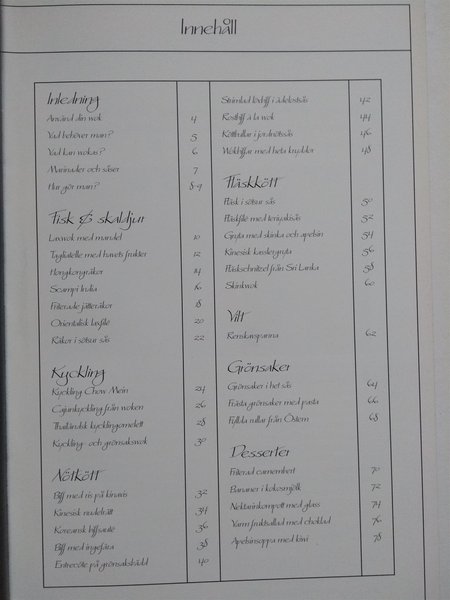 Innehåll
Inledning
Använd din wok 4
Vad behöver man? 5
Vad kan wokas? 6
Marinader och såser 7
Hur gör man? 8-9
Fisk & skaldjur
Laxwok med mandel 10
Tagliatelle med havets frukter 12
Hongkongräkor 14
Scampi India 16
Friterade jätteräkor 18
Orientalisk laxfilé 20
Räkor i sötsur sås 22
Kyckling
Kyckling Chow Mein 24
Cajunkyckling från woken 26
Thailändsk kycklingomelett 28
Kyckling- och grönsakswok 30
Nötkött
Biff med ris på kinavis 32
Kinesisk nudelrätt 34
Koreansk biffsauté 36
Biff med ingefära 38
Entrecôte på grönsaksbädd 40
Strimlad lövbiff i ädelostsås 42
Rostbiff à la wok 44
Köttbullar i jordnötssås 46
Wokbiffar med heta kryddor 48
Fläskkött
Fläsk i sötsur sås 50
Fläskfilé med teriyakisås 52
Gryta med skinka och apelsin 54
Kinesisk kasslergryta 56
Fläskschnitzel från Sri Lanka 58
Skinkwok 60
Vilt
Renskavspanna 62
Grönsaker
Grönsaker i het sås 64
Frästa grönsaker med pasta 66
Fyllda rullar från Östern 68
Desserter
Friterad camembert 70
Bananer i kokosmjölk 72
Nektarinkompott med glass 74
Varm fruktsallad med choklad 76
Apelsinsoppa med kiwi 78